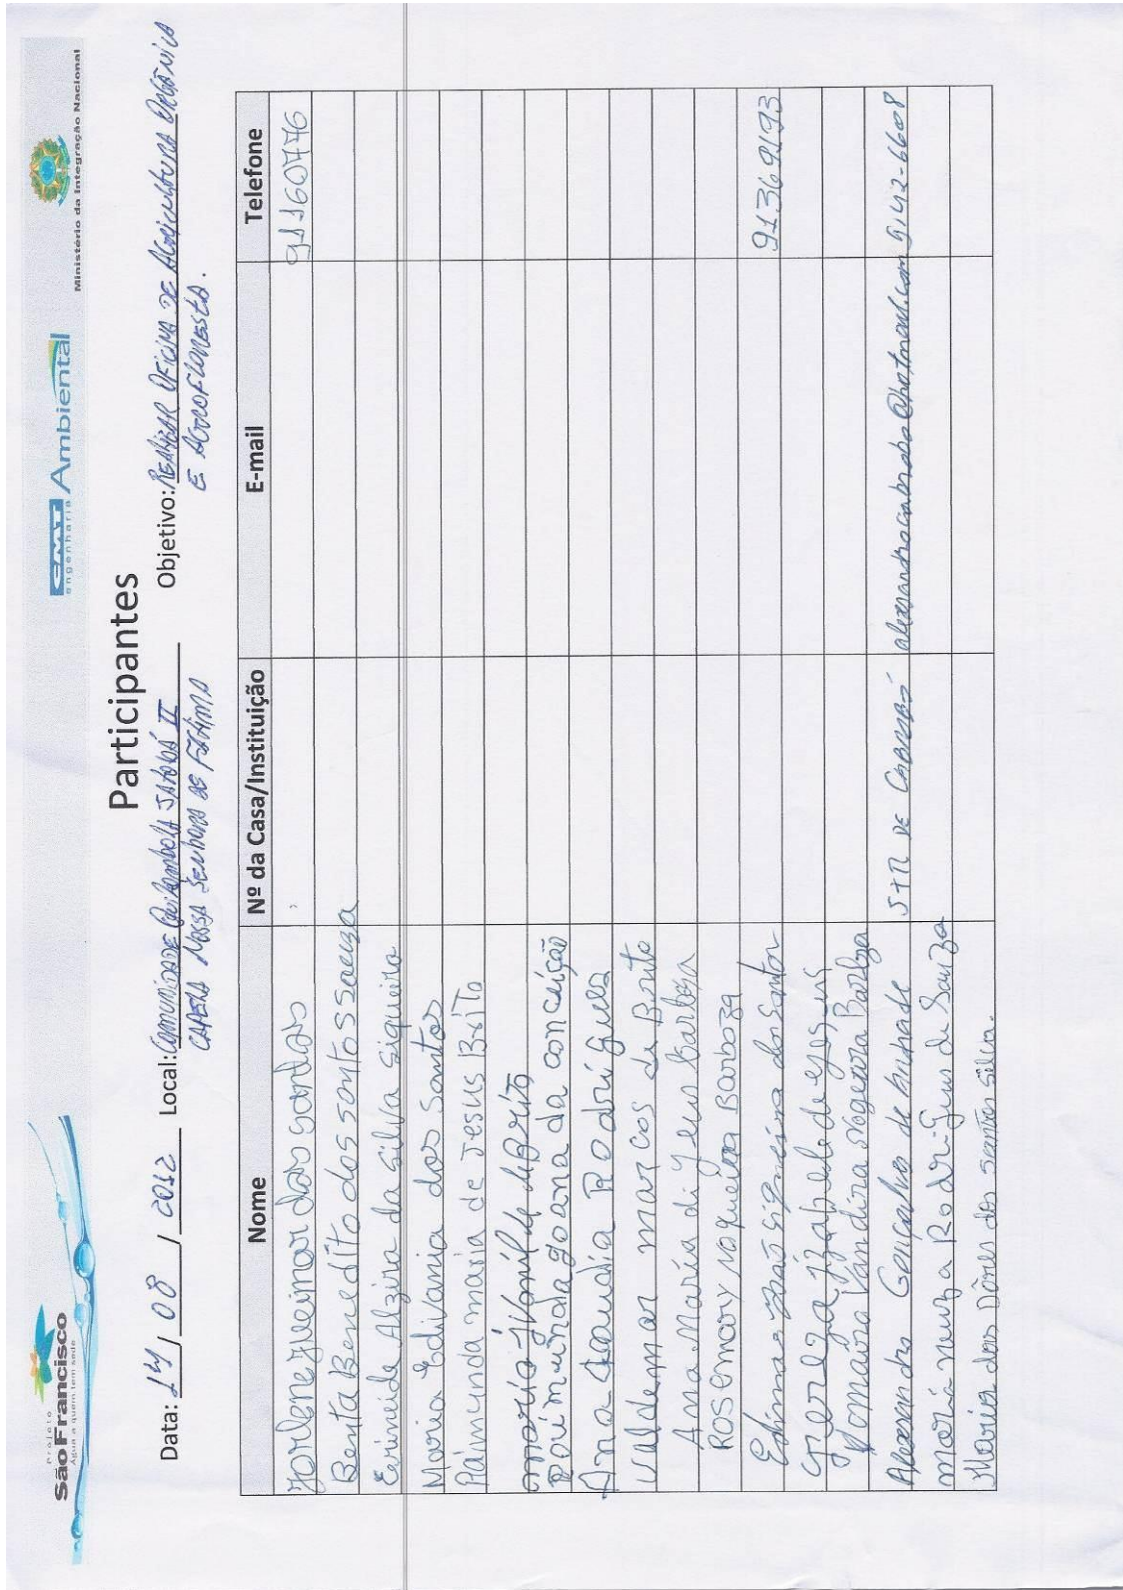 Projeto
São Francisco
Água a quem tem sede
CMT Ambiental
engenharia
Ministério da Integração Nacional
Participantes
Data: 14 / 08 / 2012 Local: Comunidade Quilombola Jatobá II Objetivo: Realizar Oficina de Agricultura Orgânica
Capela Nossa Senhora de Fátima E Agrofloresta.
Nome Nº da Casa/Instituição E-mail Telefone
dos santos 91160776
Benta Benedito dos santos souza
Erineide Alzira da Silva Siqueira
Maria Edilania dos Santos
Raimunda maria de Jesus Brito
maria Ivanilde de Brito
raimunda joana da conceição
Ana Claudia Rodrigues
Valdemar marcos de Brito
Ana Maria di Jesus barboza
Rosemary nogueira Barboza
Edimar João Siqueira dos Santos 91369193
Tereza Izabel de
Vandira Nogueira Barboza
Alexsandra Gonçalves de Andrade STR de Cabrobó alexsandracabrobo@hotmail.com 9142-6608
maria neuza Rodrigues de Souza
Maria das Dores dos santos silva.